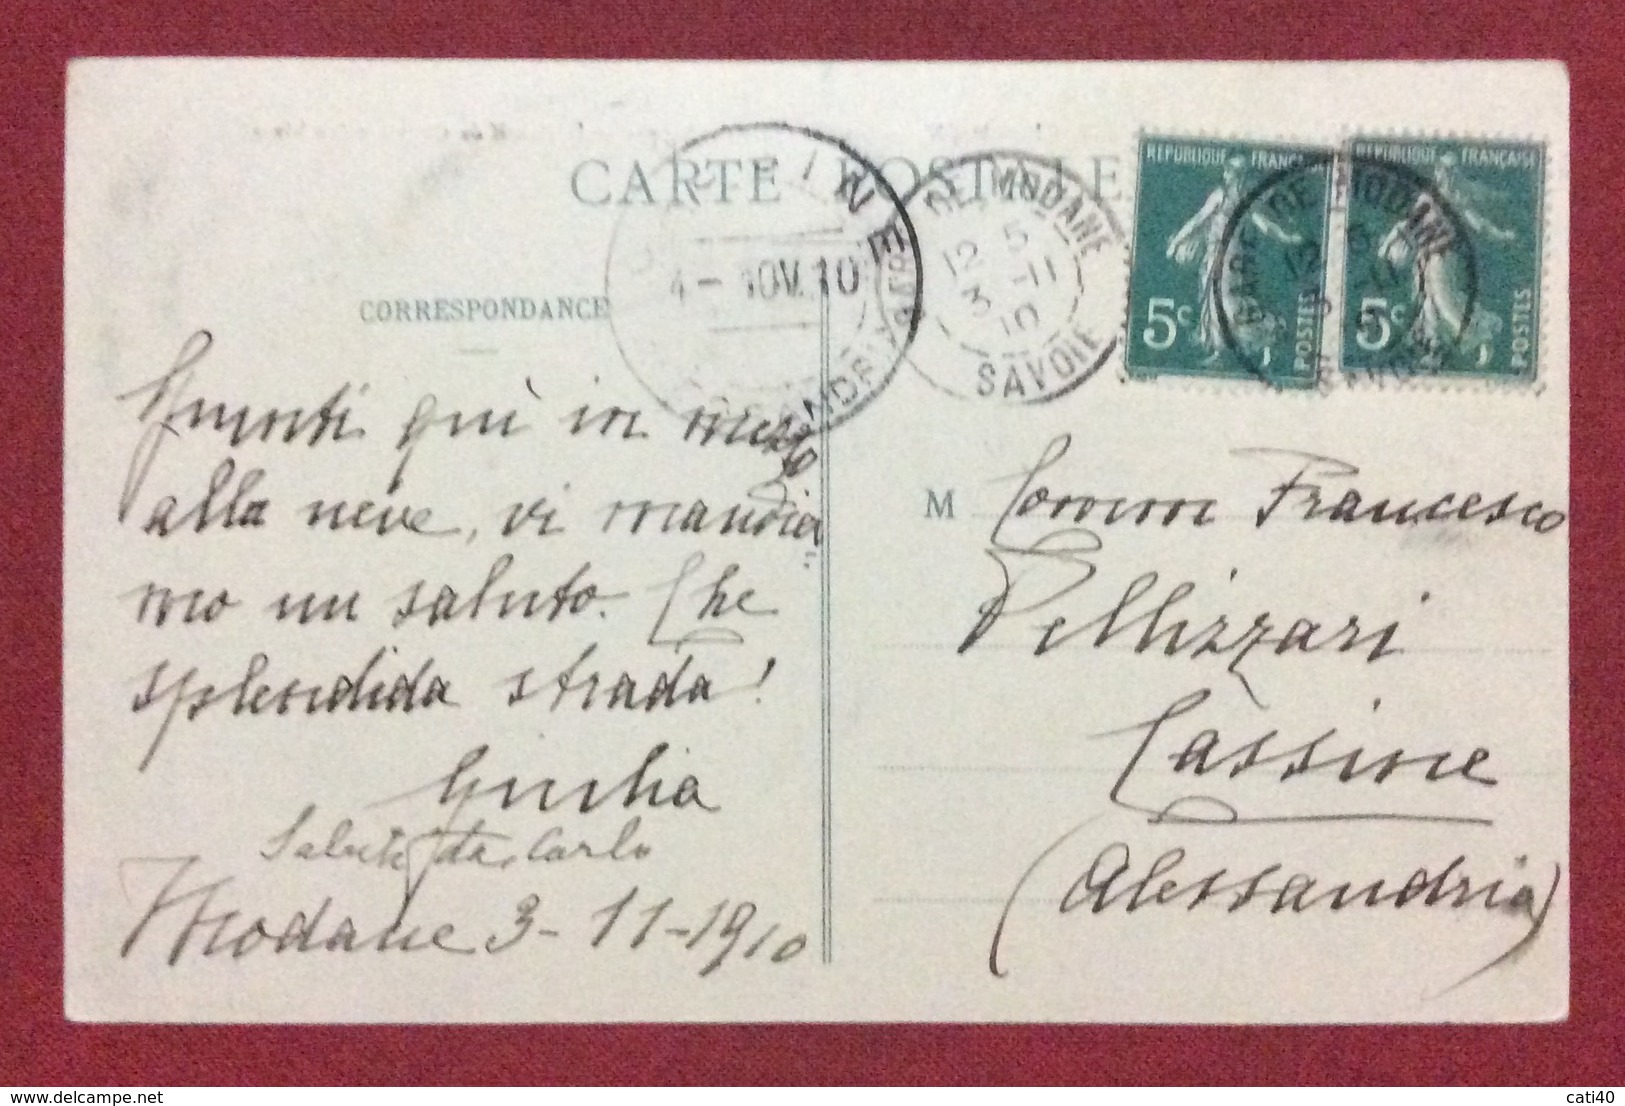 CARTE POSTALE
CORRESPONDANCE
4 - NOV. 10
GARE DE MODANE
12 5
3 - 11
10
SAVOIE
REPUBLIQUE FRANÇAISE
5c
POSTES
REPUBLIQUE FRANÇAISE
5c
POSTES
GARE DE MODANE
SAVOIE
Giunti quì in mezzo
alla neve, vi mandia
mo un saluto. Che
splendida strada!
Giulia
Saluti da Carlo
Modane 3 - 11 - 1910
M Comm Francesco
Pellizzari
Cassine
(Alessandria)
cati40